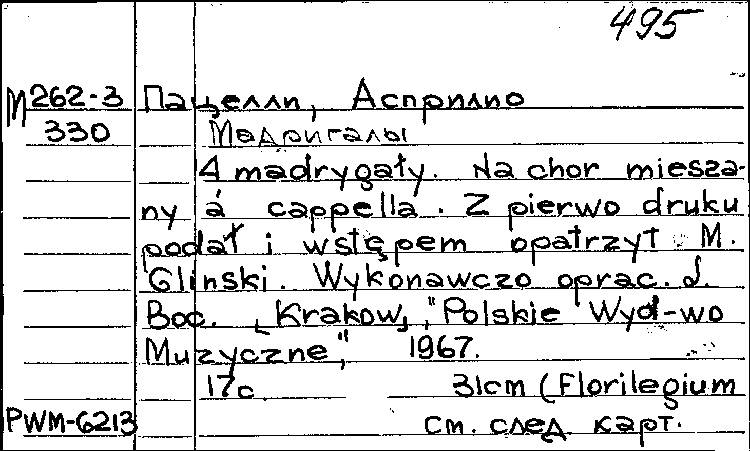 495
M 262-3 Пацелли, Асприлио
330 Мадригалы
4 madrygały. Na chor miesza-
ny a cappella. Z pierwo druku
podał i wstępem opatrzyt M.
Glinski. Wykonawczo oprac. J.
Boc. [Krakow], "Polskie Wyd-wo
Muzyczne", 1967.
17c. 31cm (Florilegium
PWM-6213 См. след. карт.